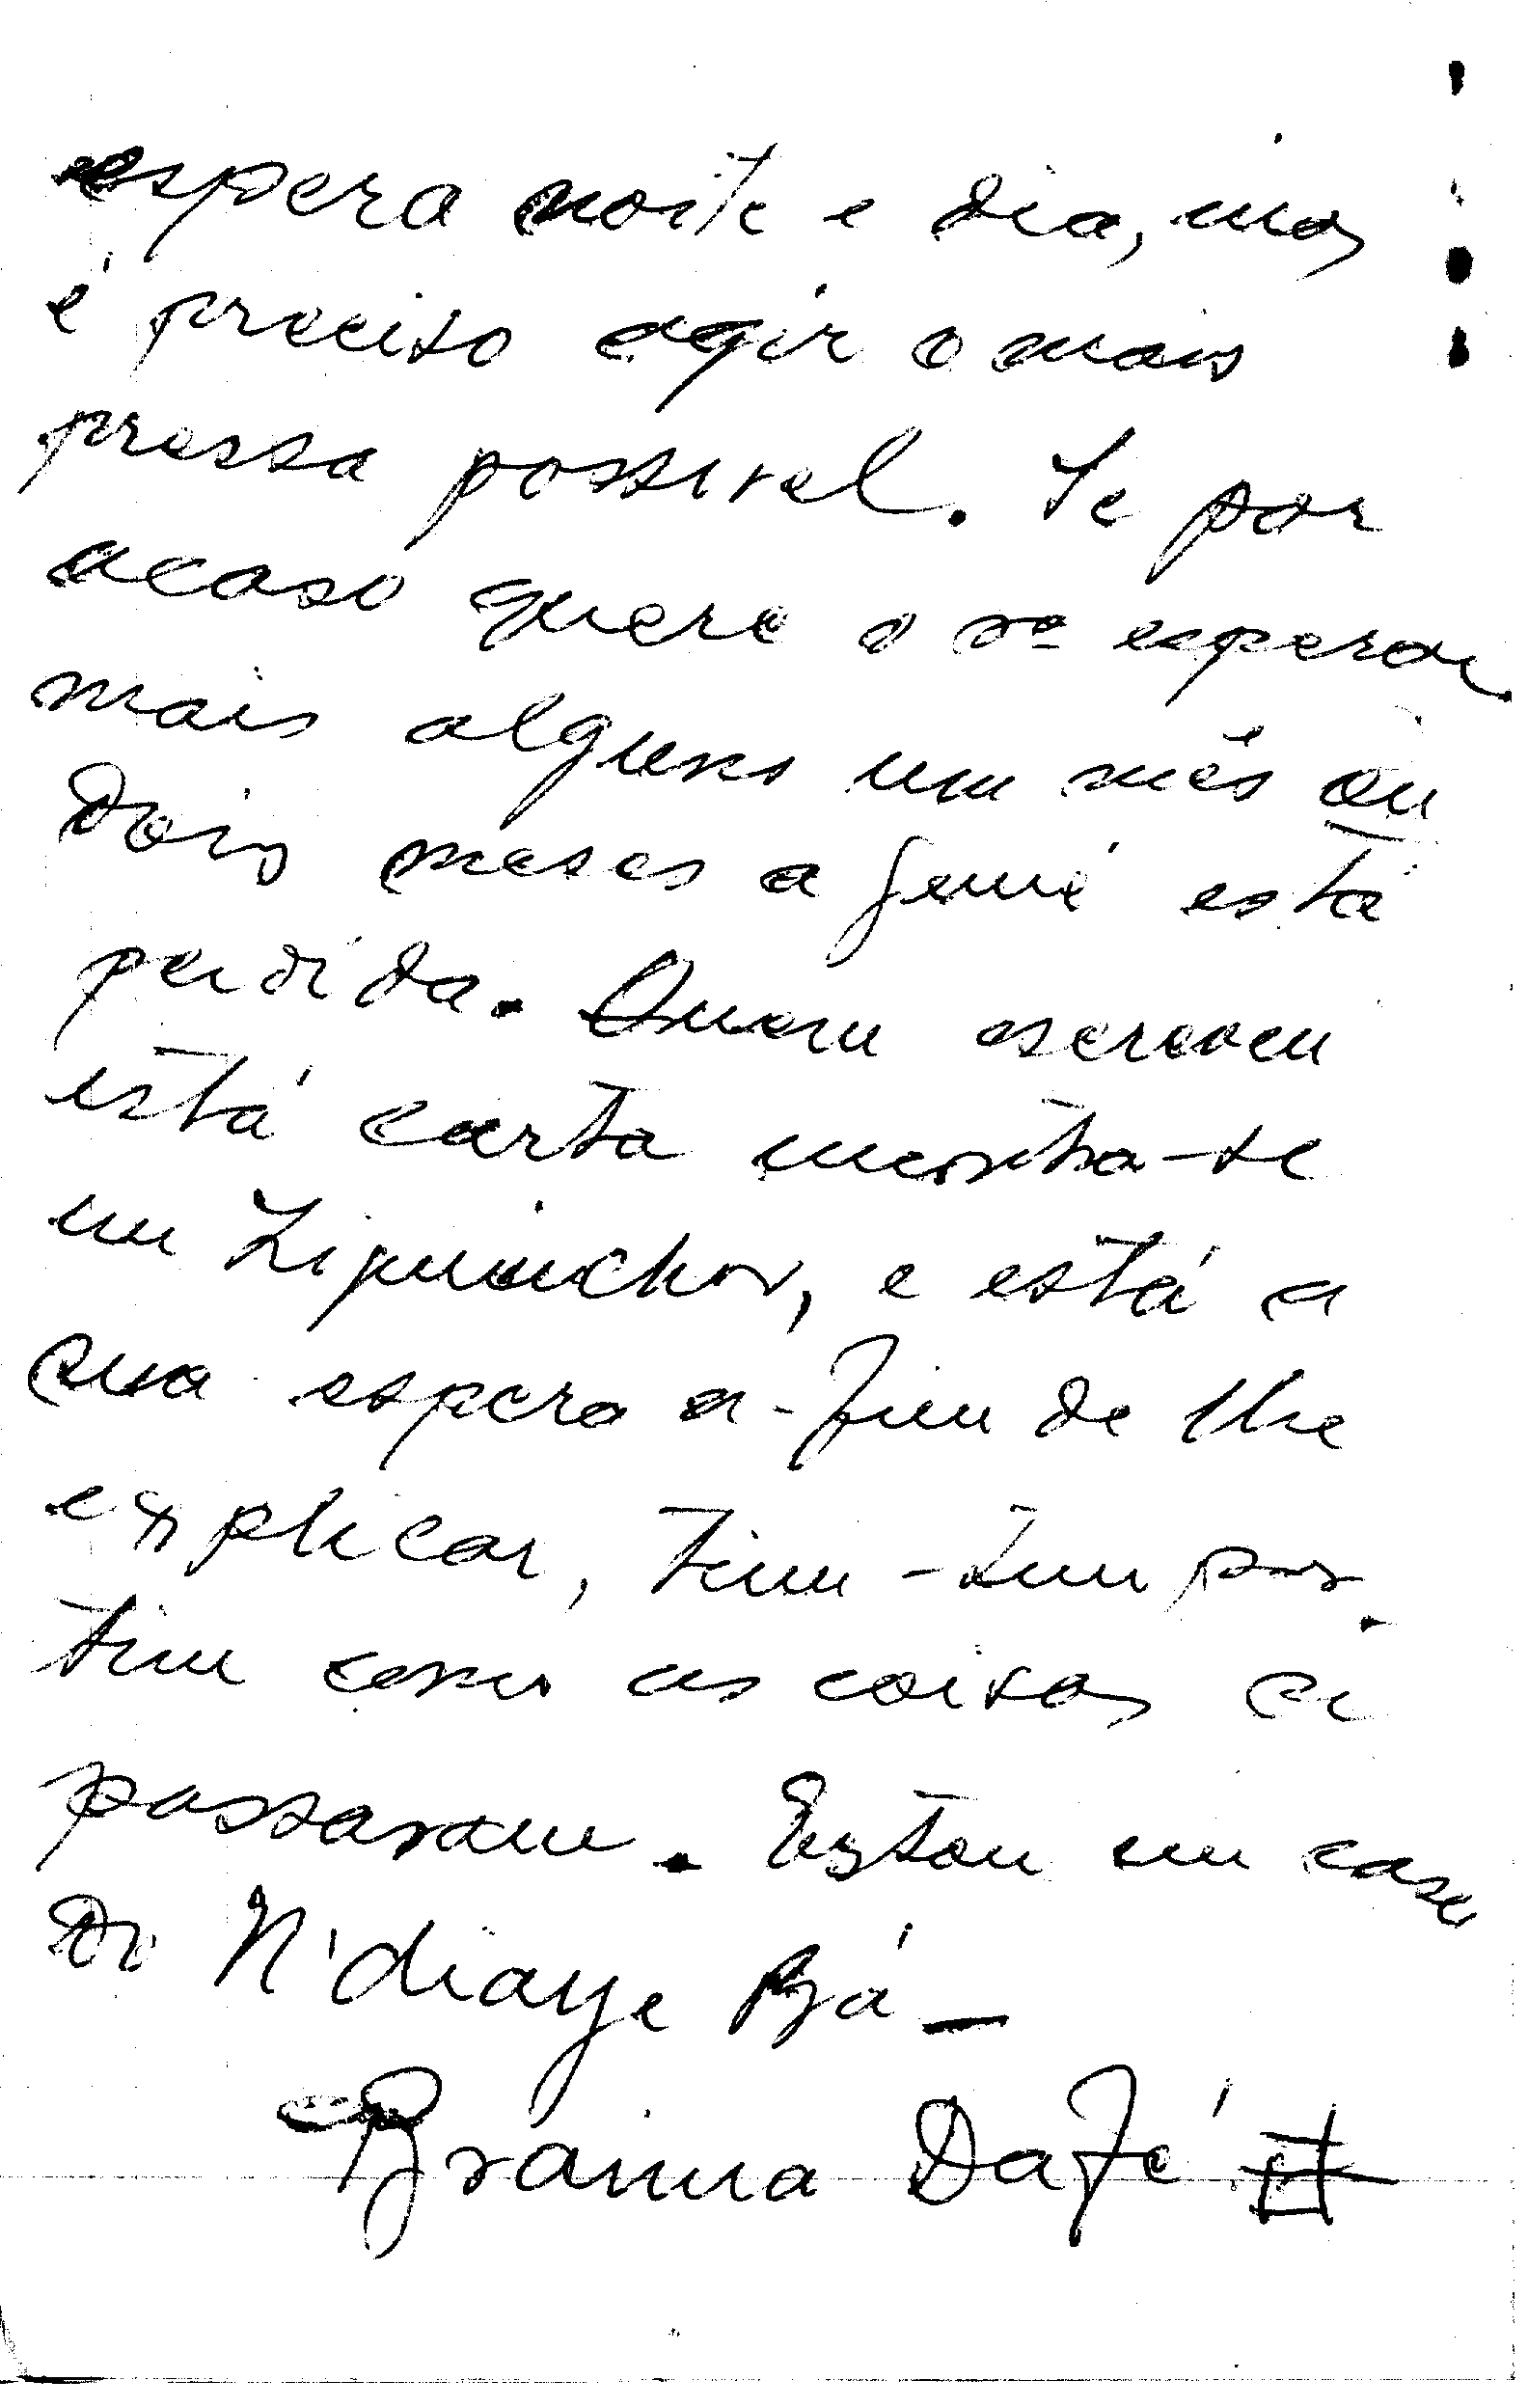 espera noite e dia, mas
é preciso agir o mais
pressa possivel. Se por
acaso quere o sº esperar
mais alguns um mês ou
dois meses a está
perdida. Quem escreveu
está carta -se
em Ziguinchor, e está a
sua espera a-fim de lhe
explicar, tim-tim por
tim como as coisas ai
passaram. Estou em casa
De N'diaye Bá—
Braima Dafé